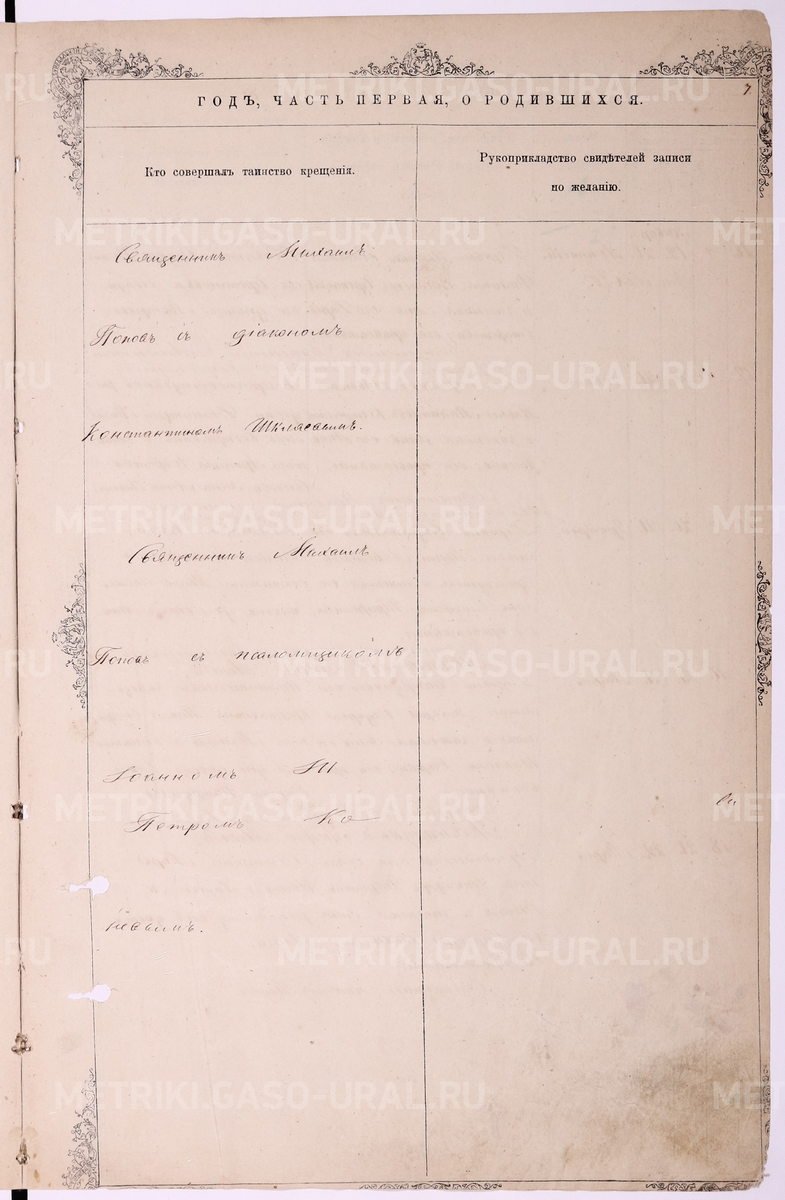 7
ГОДЪ, ЧАСТЬ ПЕРВАЯ, О РОДИВШИХСЯ.
Кто совершалъ таинство крещенія.
Рукоприкладство свидѣтелей записи
по желанію.
Священникъ Михаилъ
Поповъ съ діакономъ
Константиномъ
Священникъ Михаилъ
Поповъ съ псаломщикомъ
Іоанномъ
Петромъ Ко
METRIKI.GASO-URAL.RU